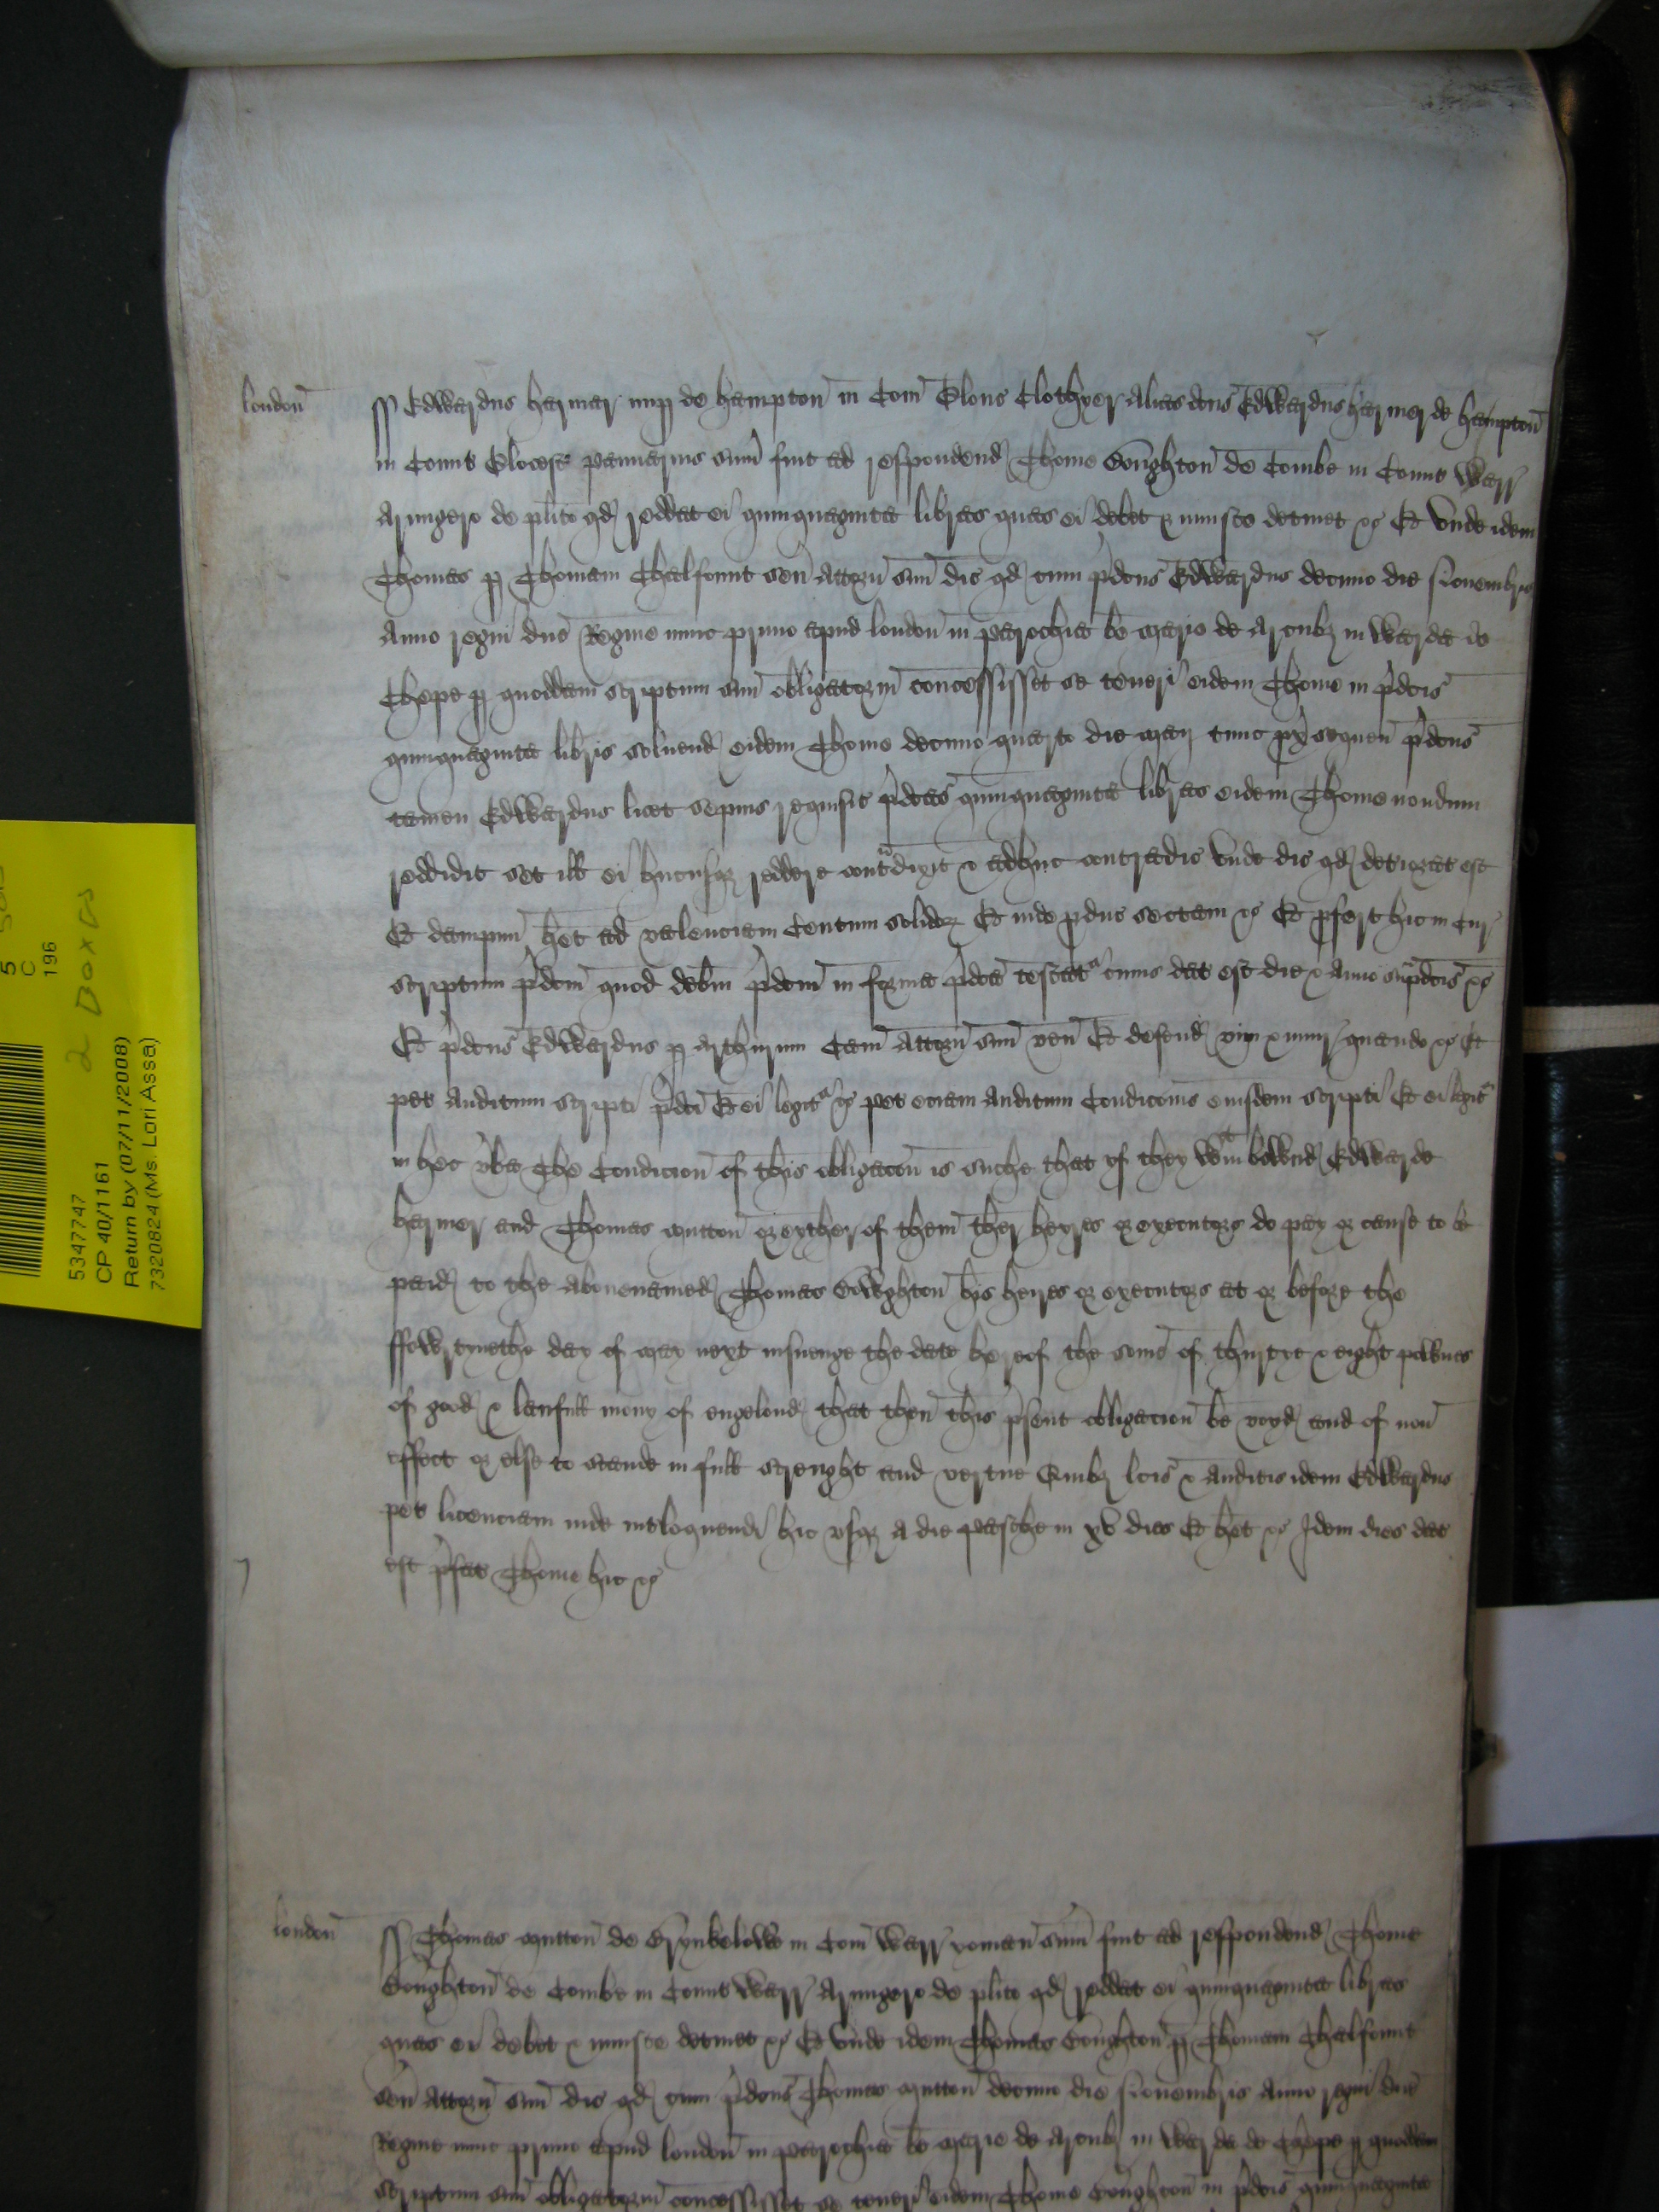 london̄
ss Edwardus harmar nup de hampton̄ in Com̄ Glouc Clothyer Alias dcūs Edwardus harmer de hampton̄
in Comit Glocestr pannarius sum̄ fuit ad respondend Thome Boughton̄ de Combe in Comit Warr
Armigero de plito qd reddat ei quinquaginta libras quas ei debet & iniuste detinet &c Et vnde idem
Thomas p Thomam Chalfount sen̄ Attorn̄ suū dic qd cum p̄dcus Edwardus decimo die Nouembris
Anno regni dn̄e Regine nunc primo apud london̄ in parochia be Marie de Arcubȝ in Warda de
Chepe p quoddam scriptum suū obligatoriū concessisset se teneri eidem Thome in p̄dcis
quinquaginta libris soluend eidem Thome decimo quarto die Maij tunc px̄ sequen̄ p̄dcus
tamen Edwardus licet sepius requisit p̄dcas quinquaginta libras eidem Thome nondum
reddidit set ill ei hucusqȝ reddere contradixit & adhuc contradic vnde dic qd deteriorat est
Et dampnū het ad valenciam Centum solidoȝ Et inde pduc sectam &c Et pfert hic in Cur
scriptum p̄dcm̄ quod debm̄ p̄dcm̄ in forma p̄dca testat cuius dat est die & Anno sup̄dcis &c
Et p̄dcus Edwardus p Arthurum Cam̄ Attorn̄ suū ven̄ Et defend vim & iniur quando &c Et
pet Auditum scripti p̄dci Et ei legit &c pet eciam Auditum Condicōnis eiusdem scripti Et ei legit
in hec v̄ba The Condicion̄ of this obligacōn is suche that yf they wtin bownd Edwarde
harmer and Thomas Mutton̄ or eyther of them̄ ther heyres or executors do pay or cause to be
paid to the Abouenamed Thomas Bowghton̄ his heires or executors at or before the
ffowrtenethe day of May next insuenge the date hereof the som̄e of thurtye & eight pownes
of good & laufull mony of engelond that then̄ this p̄sent obligacion̄ be voyd and of non̄
effect or else to stande in full strenght and vertue Quibȝ lcis & Auditis idem Edwardus
pet licenciam inde int̄loquendi hic vsqȝ A die pasche in xv dies Et het &c Idem dies dat
est p̄fat Thome hic &c
london̄
ss Thomas Mutton̄ de Brynkelowe in Com̄ Warr yoman̄ sum̄ fuit ad respondend Thome
Boughton̄ de Combe in Comit Warr Armigero de plito qd reddat ei quinquaginta libras
quas ei debet & iniuste detinet &c Et vnde idem Thomas Boughton̄ p Thomam Chalfount
sen̄ Attorn̄ suū dic qd cum p̄dcus Thomas Mutton̄ decimo die Nouembris Anno regni dn̄e
Regine nunc primo apud london̄ in parochia be Marie de Arcubȝ in Warda de Chepe p quoddam
scriptum suū obligatoriū concessisset se teneri eidem Thome Boughton̄ in p̄dcis quinquaginta
5
C
196
2 Boxes
5347747
CP 40/1161
Return by (07/11/2008)
7320824 (Ms. Lori Assa)